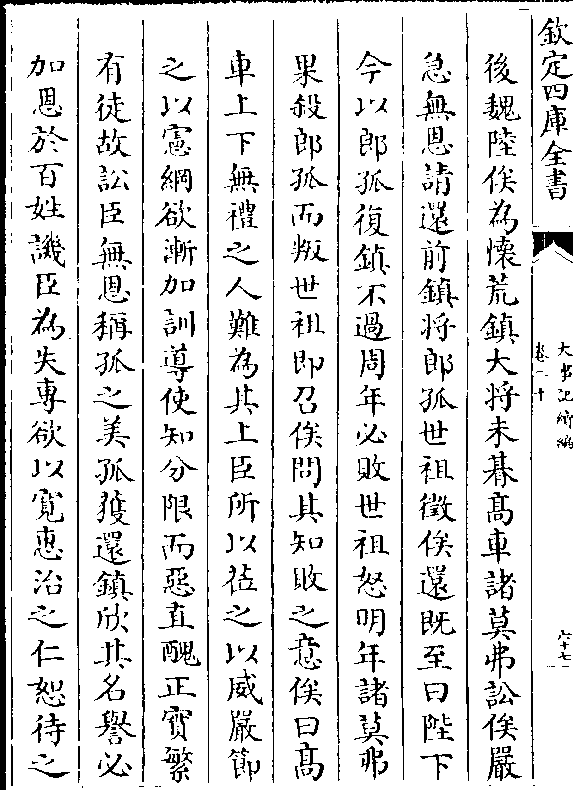 欽定四庫全書
大事記續編
卷二十
六十七
後魏陸俟為懷荒鎮大將未朞髙車諸莫弗訟俟嚴
急無恩請還前鎮將郎孤世祖徵俟還既至曰陛下
今以郎孤復鎮不過周年必敗世祖怒明年諸莫弗
果殺郎孤而叛世祖即召俟問其知敗之意俟曰髙
車上下無禮之人難為其上臣所以莅之以威嚴節
之以憲綱欲漸加訓導使知分限而惡直醜正實繁
有徒故訟臣無恩稱孤之美孤獲還鎮欣其名譽必
加恩於百姓譏臣為失專欲以寬惠治之仁恕待之